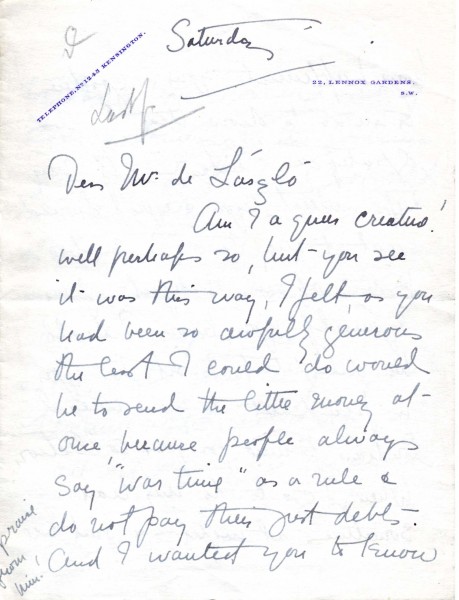 Saturday
TELEPHONE, Nº 1243 KENSINGTON.
22, LENNOX GARDENS.
S.W.
Dear Mr. de László
Am I a queer creature!
well perhaps so, but you see
it was this way, I felt, as you
had been so awfully generous
the least I could do would
be to send the little money at
once, because people always
say, "was time" as a rule &
do not pay their just debts.
And I wanted you to know
praise
from
him!